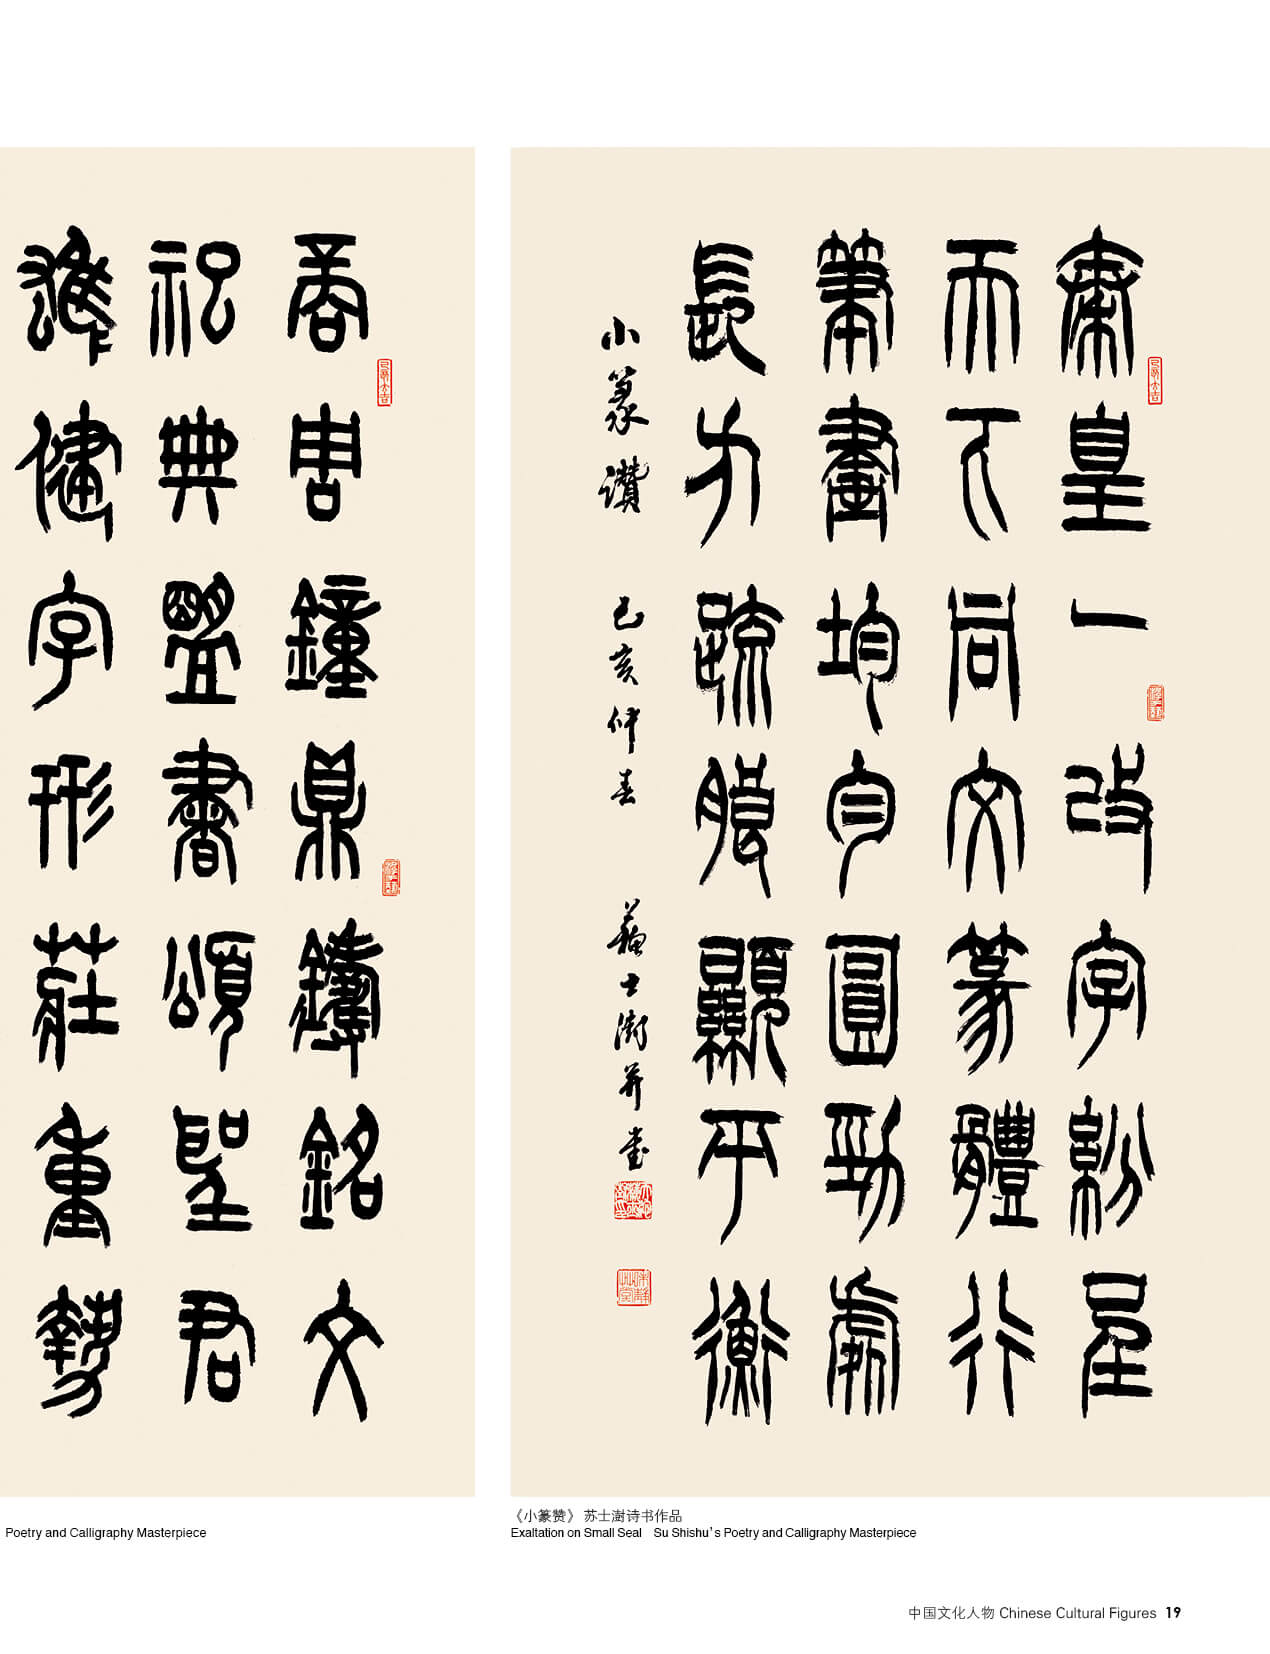 秦皇一改字紛呈
而下同文篆體行
筆畫均勻圓勁處
長方疏朗顯平衡
小篆讚 己亥仲春 蘇士澍并書
商周鐘鼎鑄銘文
祀典盟書頌聖君
雄健字形莊重勢
Poetry and Calligraphy Masterpiece
《小篆赞》 苏士澍诗书作品
Exaltation on Small Seal Su Shishu's Poetry and Calligraphy Masterpiece
中国文化人物 Chinese Cultural Figures 19